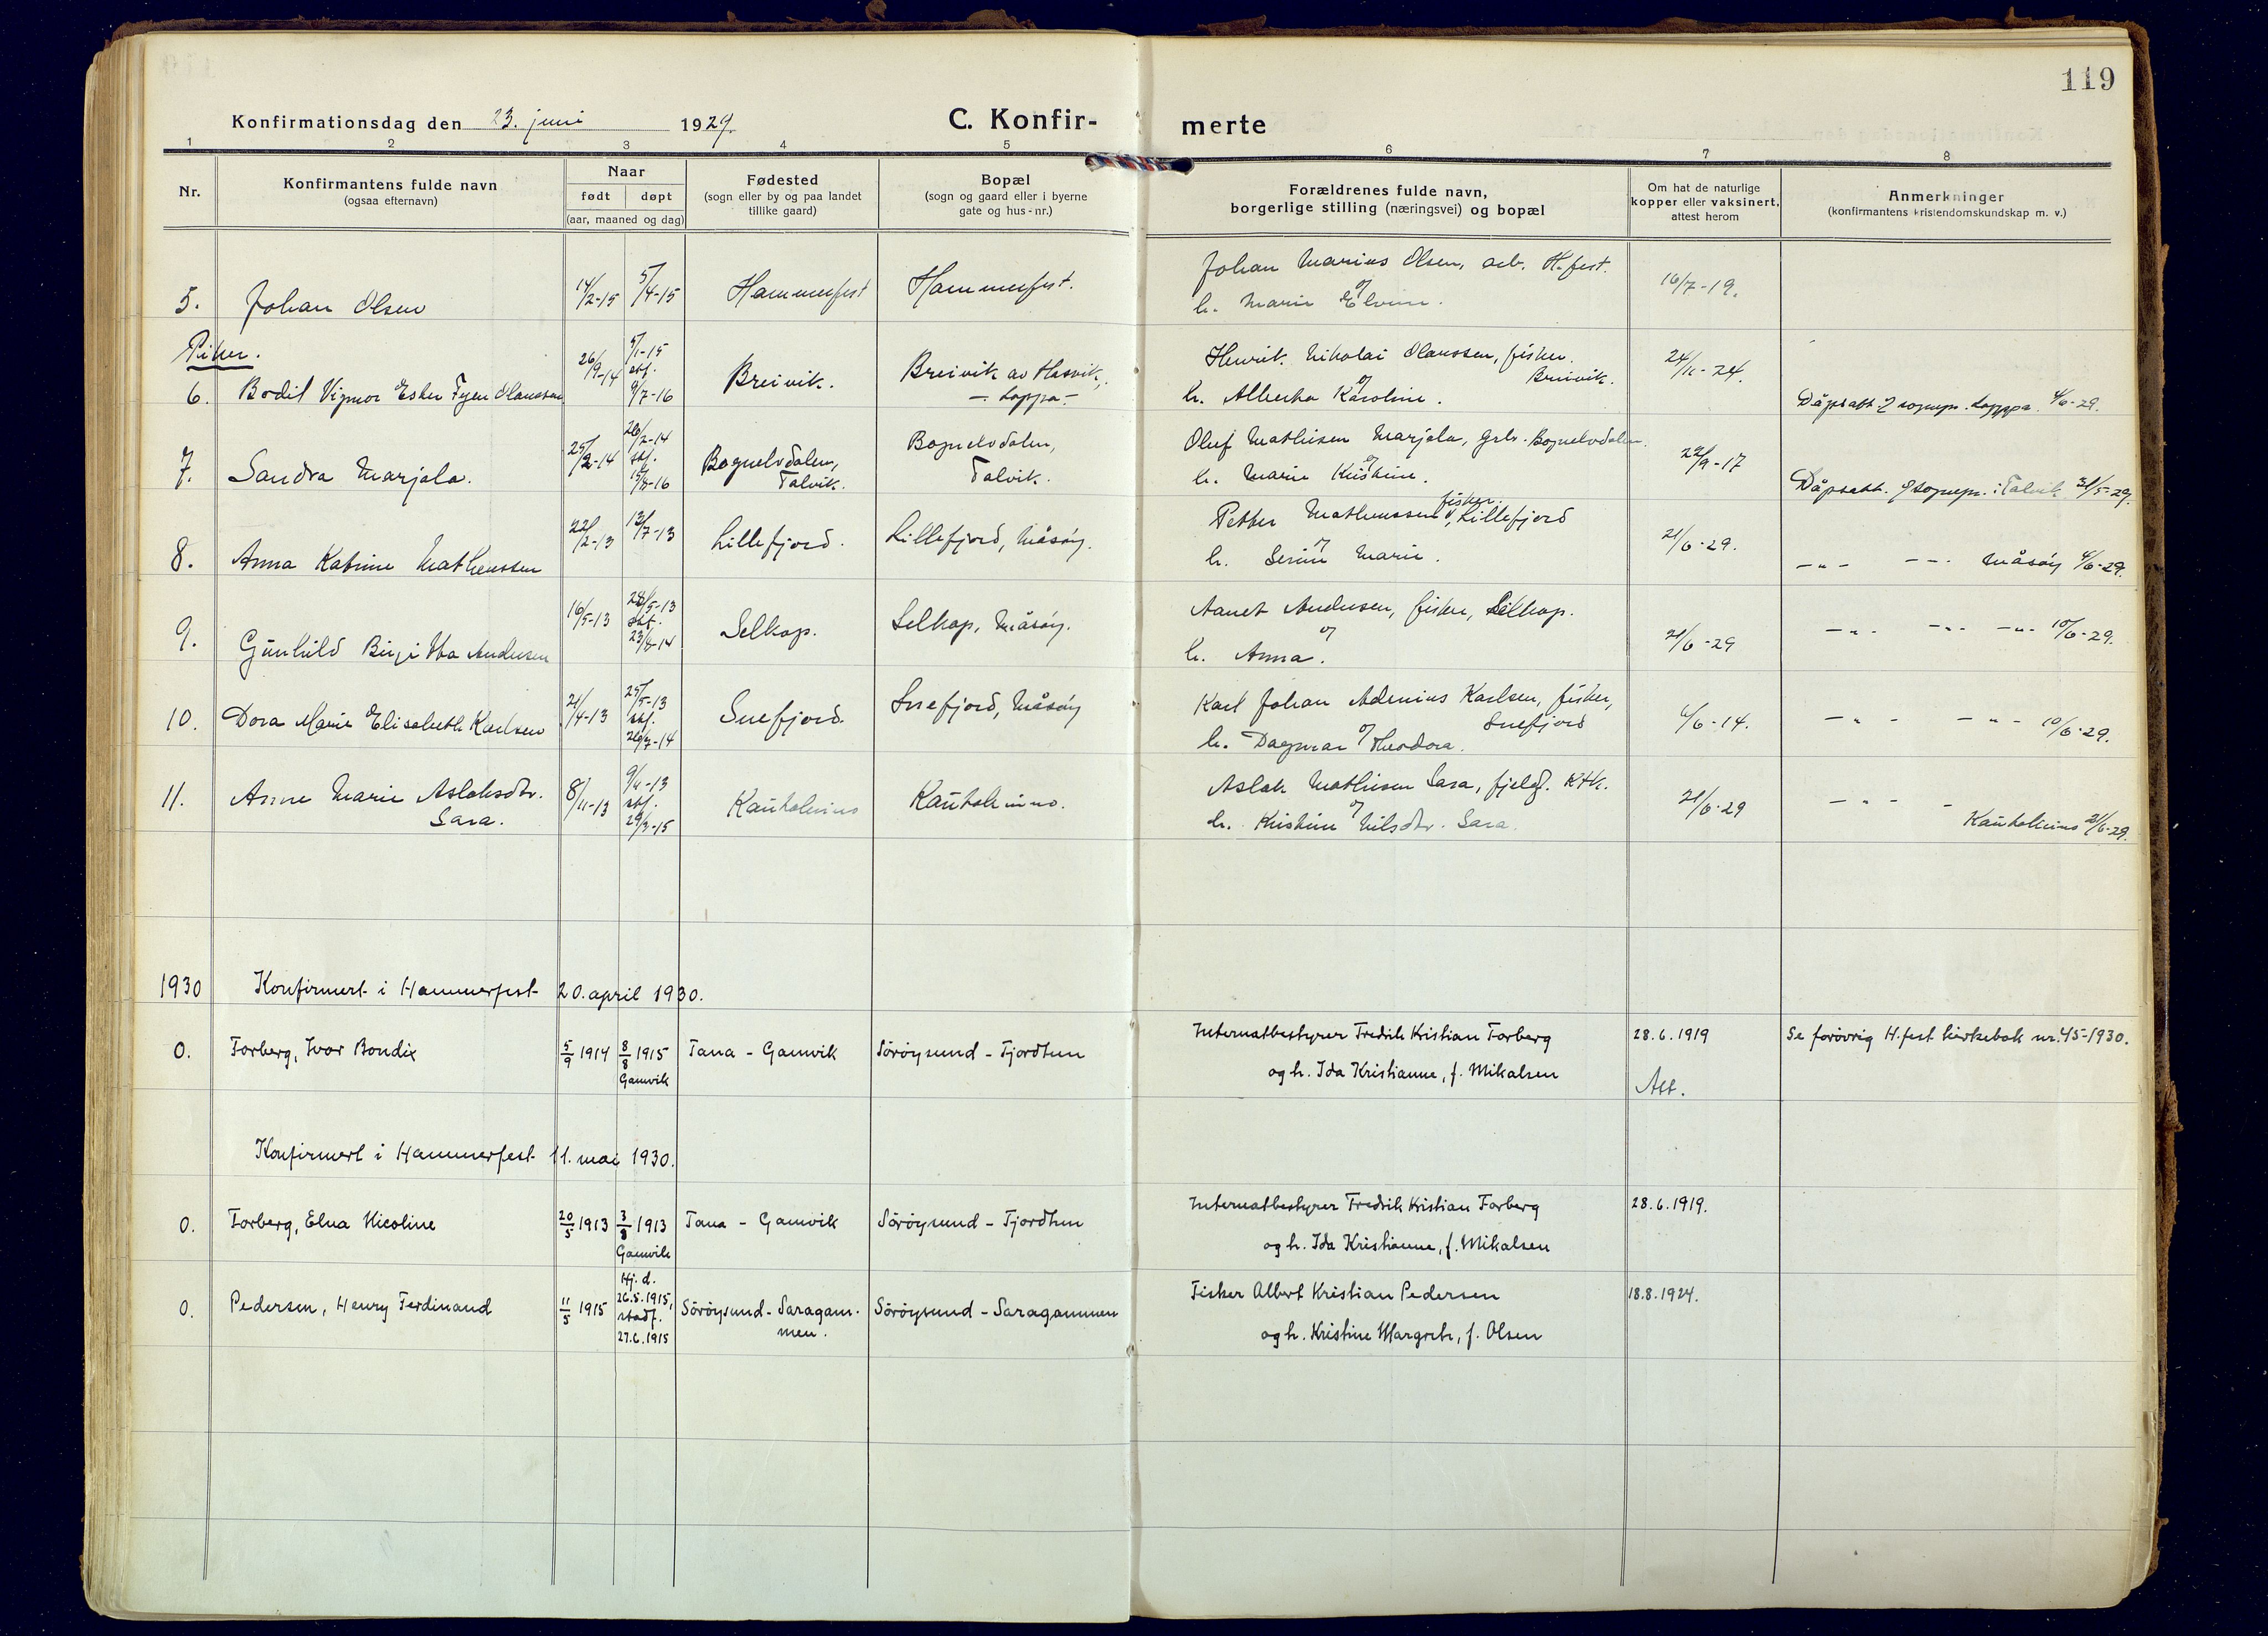 119
Konfirmationsdag den 23. juni 1929. C. Konfir- merte
1 2 3 4 5 6 7 8
Nr. Konfirmantens fulde navn (ogsaa efternavn)
Naar født døpt (aar, maaned og dag)
Fødested (sogn eller by og paa landet tillike gaard)
Bopæl (sogn og gaard eller i byerne gate og hus-nr.)
Forældrenes fulde navn, borgerlige stilling (næringsvei) og bopæl
Om hat de naturlige kopper eller vaksinert, attest herom
Anmerkninger (konfirmantens kristendomskundskap m. v.)
5. Johan Olsen 14/2-15 5/4-15 Hammerfest Hammerfest. Johan Marius Olsen, arb. H.fest.
og h. Marie Elvine. 16/7-19.
Piker.
6. Bodil Vigmor Ester Fyen Olaussen 26/9-14 5/1-15 stf. 9/7-16 Breivik. Breivik av Hasvik,
- Loppa - Henrik Nikolai Olaussen, fisker. Breivik.
og h. Alberta Karoline. 24/11-24. Dåpsatt. f sognepr. Loppa. 4/6-29.
7. Sandra Marjala. 25/2-14 26/2-14 stf. 15/8-16 Bognelvdalen, Talvik. Bognelvdalen, Talvik. Oluf Mathisen Marjala, grbr. Bognelvdalen.
og h. Marie Kristine. 22/9-17 Dåpsatt. f sognepr. i Talvik 31/5-29.
8. Anna Katrine Matheussen 22/2-13 13/7-13 Lillefjord. Lillefjord, Måsøy. Petter Matheussen, fisker. Lillefjord
og h. Serine Marie. 21/6-29. -"- -"- Måsøy 4/6-29.
9. Gunhild Birgitta Andersen 16/5-13 28/5-13 stf. 23/8-14 Selkop. Selkop, Måsøy. Aanet Andersen, fisker, Selkop.
og h. Anna. 21/6-29 -"- -"- -"- 10/6-29.
10. Dora Marie Elisabeth Karlsen 21/4-13 25/5-13 stf. 26/7-14 Snefjord. Snefjord, Måsøy Karl Johan Adenius Karlsen, fisker, Snefjord
og h. Dagmar Theodora. 4/6-14. -"- -"- 10/6-29.
11. Anne Marie Aslaksdtr. Sara. 8/11-13 9/11-13 stf. 29/3-15 Kautokeino Kautokeino. Aslak Mathisen Sara, fjeldf. Ktk.
og h. Kristine Nilsdtr. Sara. 21/6-29 -"- - Kautokeino 21/6-29.
1930 Konfirmert i Hammerfest 20. april 1930.
0. Forberg, Ivar Bondix 5/9 1914 8/8 1915 Gamvik Tana - Gamvik Sørøysund - Fjordtun Internatbestyrer Fredrik Kristian Forberg
og h. Ida Kristianne, f. Mikalsen 28.6.1919 Att. Se forøvrig H.fest kirkebok nr. 45-1930.
Konfirmert i Hammerfest 11. mai 1930.
0. Forberg, Elna Nicoline 20/5 1913 3/8 1913 Gamvik Tana - Gamvik Sørøysund - Fjordtun Internatbestyrer Fredrik Kristian Forberg
og h. Ida Kristianne, f. Mikalsen 28.6.1919.
0. Pedersen, Henry Ferdinand 11/5 1915 Hj. d. 26.5.1915, stadf. 27.6.1915 Sørøysund - Saragammen. Sørøysund - Saragammen Fisker Albert Kristian Pedersen
og h. Kristine Margrete, f. Olsen 18.8.1924.